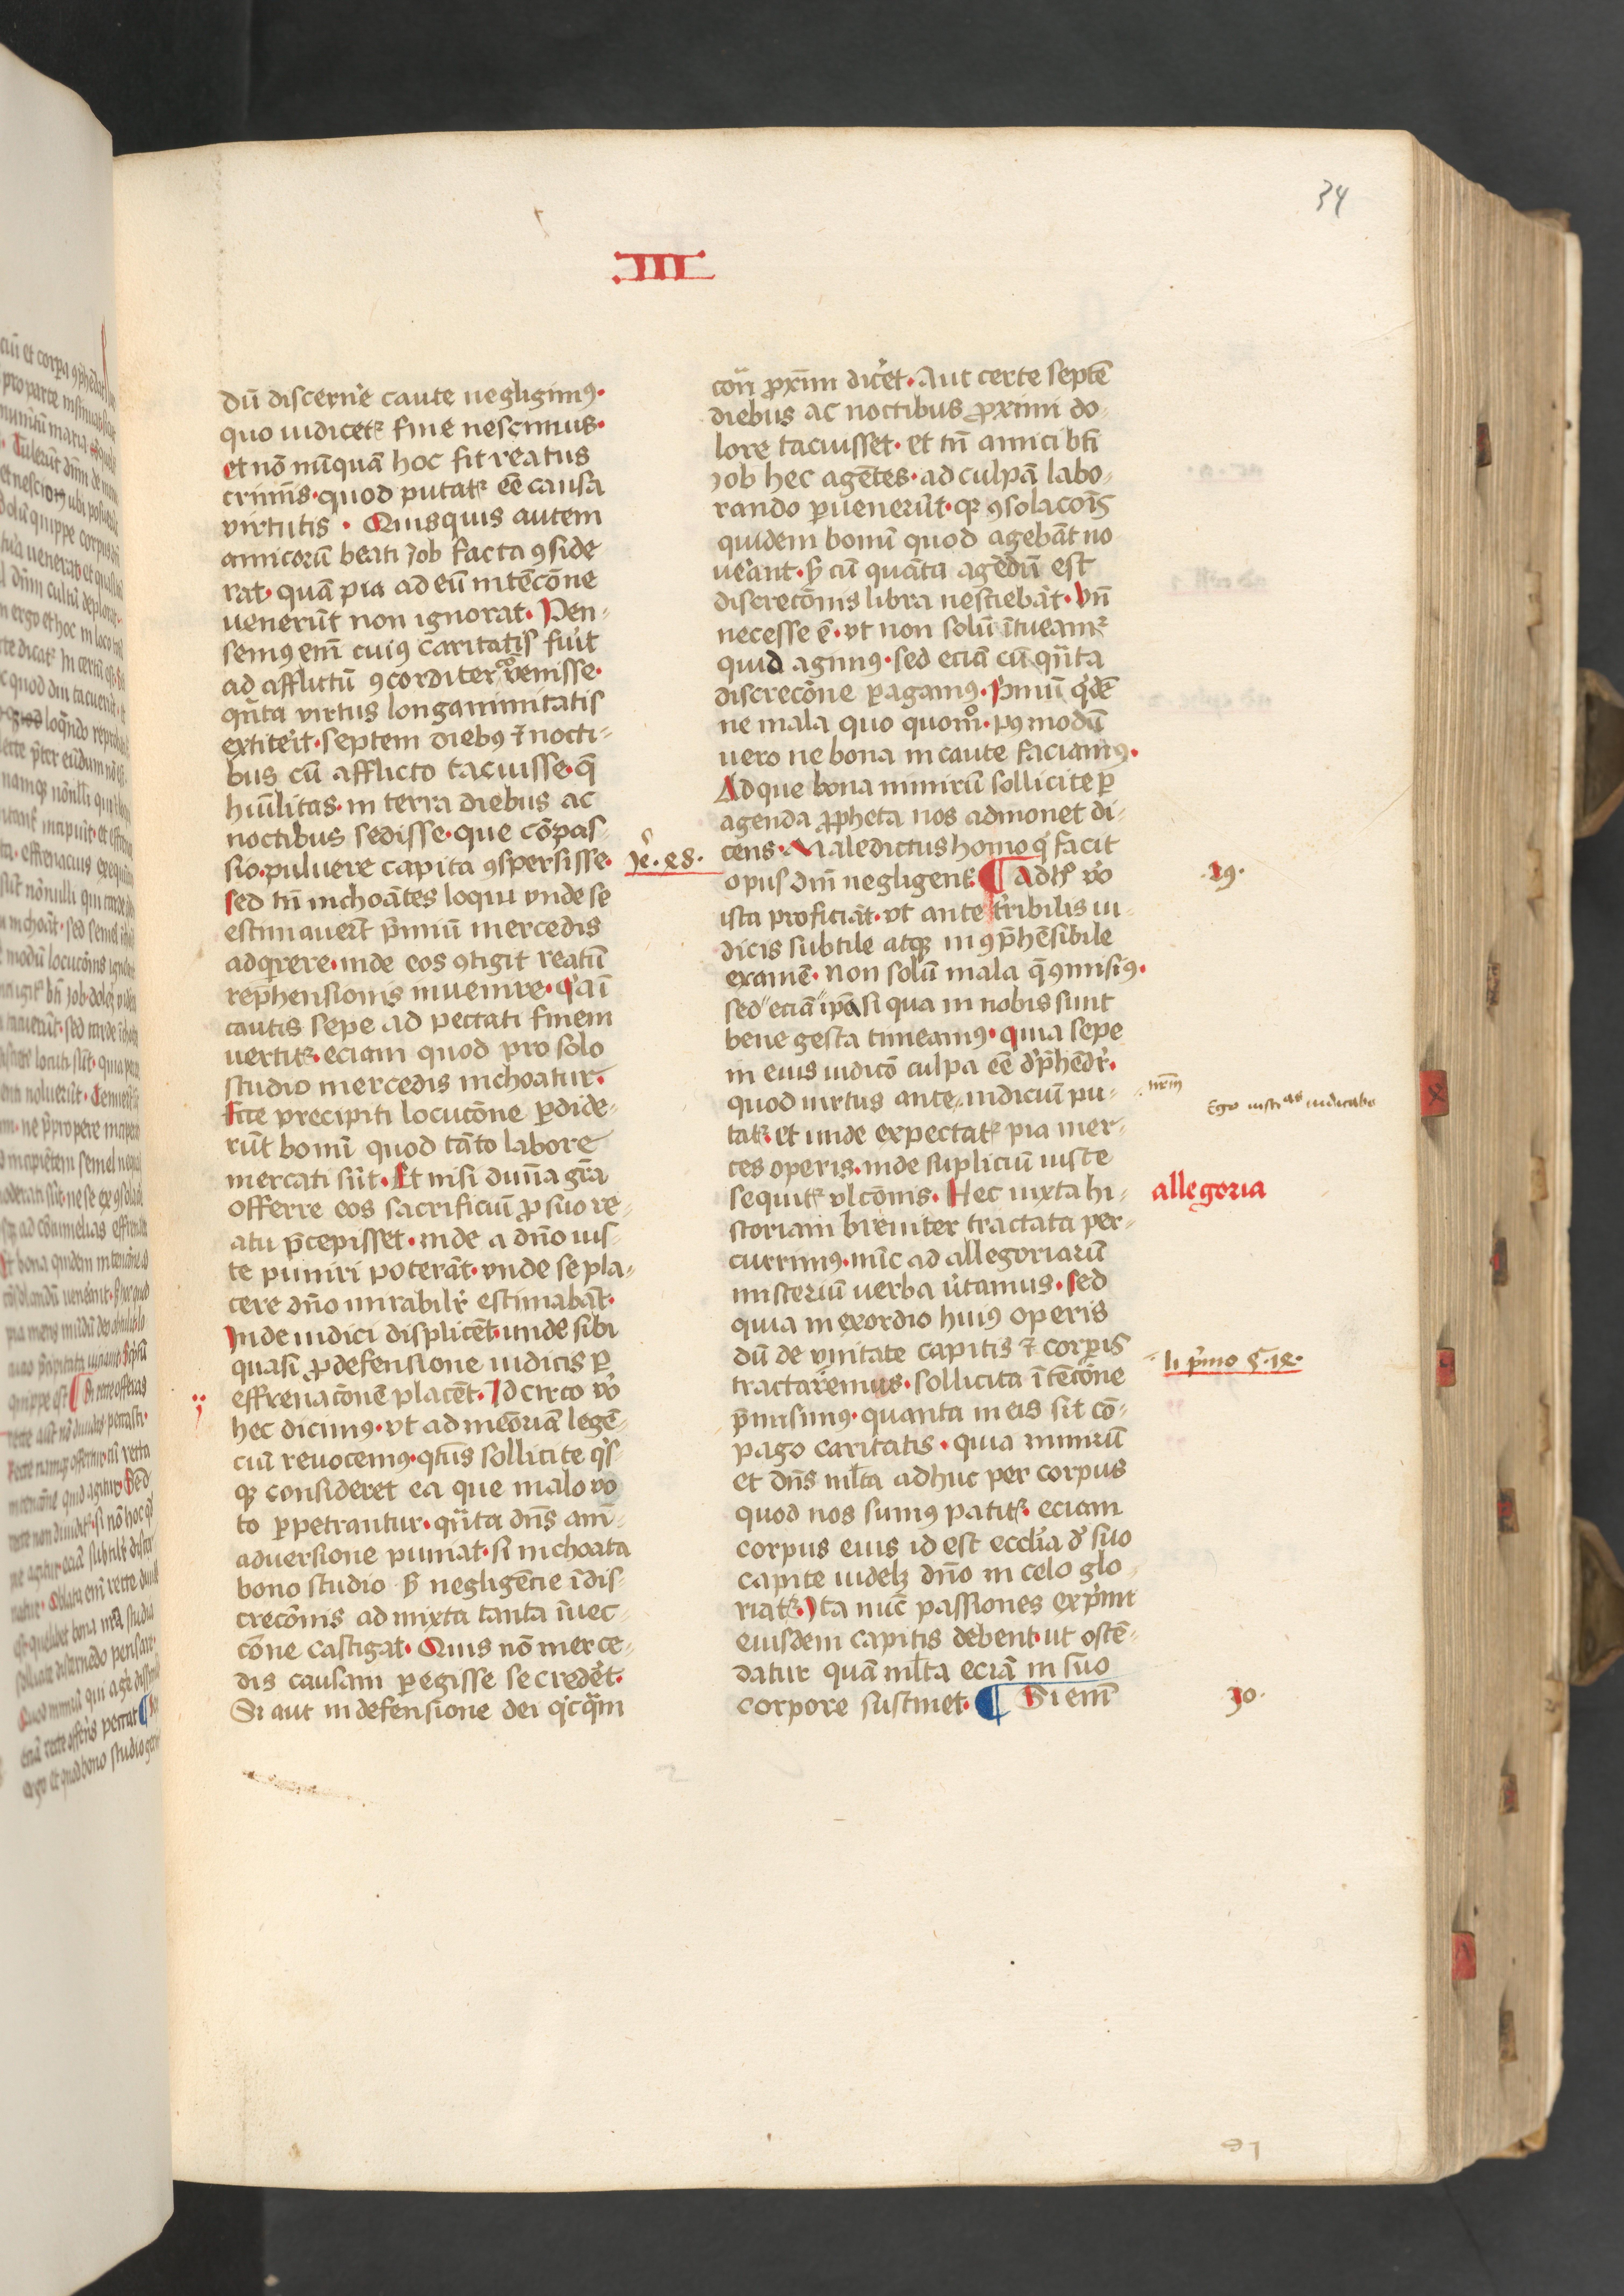 34
III
dū discerne᷑ caute negligimꝯ·
quo iudicetꝝ fine nescimus·
et nō nūquā hoc fit reatus
crimīs· quod putatꝝ eē causa
virtutis · Quisquis autem
amicorū beati Job facta ꝯside
rat· quā pia ad eū intēcōne
uenerūt non ignorat· Pen-
semꝯ enī cuiꝯ caritatis fuit
ad afflictū ꝯcorditer venisse·
qꝫta virtus longanimitatis
extiterit· septem diebꝯ ⁊ nocti-
bus cū afflicto tacuisse· q̄
hūilitas· in terra diebus ac
noctibus sedisse· que cōpas-
sio· puluere capita ꝯspersisse·
sed tn̄ inchoātes loqui vnde se
estimauerūt p̄miū mercedis
adqirere· inde eos ꝯtigit reatū
rep̄hensionis inuenire· qꝛ aī
cautis sepe ad peccati finem
vertitꝝ· eciam quod pro solo
studio mercedis inchoatur·
Ecce precipiti locucōne ꝑdide-
rūt bonū quod tāto labore
mercati sūt· Et nisi diuīa gr̄a
offerre eos sacrificiū ꝓ suo re-
atu p̄cepisset· inde a dn̄o ius-
te puniri poterāt· vnde se pla-
cere dn̄o mirabilr̄ estimabāt·
Inde iudici displicēt· unde sibi
quasi ꝓ defensione iudicis ꝑ
effrenacōnē placēt· Idcirco v̊o
hec dicimꝯ· vt ad meōriā legē-
ciū reuocemꝯ· qtꝯ sollicite qͥs-
qꝫ consideret ea que malo vo
to ꝑpetrantur· qꝫta dn̄s anī-
aduersione puniat· si inchoata
bono studio sꝫ negligēcie īdis-
crecōnis admixta tanta īuec-
cōne castigat· Quis nō merce-
dis causam ꝑegisse se crede᷑t·
Si aut in defensione dei qͥcqͣm
Je᷑· 48·
con̄ ꝓxīm dice᷑t· Aut certe septē
diebus ac noctibus ꝓximi do-
lore tacuisset· et tn̄ amici bt̄i
Job hec agētes· ad culpā labo-
rando ꝑuenerūt· qꝛ ꝯsolacōīs
quidem bonū quod agebāt no
ue᷑ant· sꝫ cū quāta agēdū est
discrecōnis libra nesciebāt· Vn̄
necesse ē· vt non solū ītueamꝝ
quid agimꝯ· sed eciā cū qꝫta
discrecōne ꝑagamꝯ· Pͥmū qͥdē
ne mala quo quomᵒ· pꝯmodū
uero ne bona incaute faciamꝯ·
Ad que bona nimirū sollicite ꝑ
agenda ꝓpheta nos admonet di-
cēns· Maledictus homo qͥ facit
opus dn̄i negligentꝝ ¶ Ad hͦ v̊o
ista proficiāt· vt ante tribilis iu-
dicis subtile atqꝫ inꝯp̄hēsibile
examē· non solū mala q̄ ꝯmisimꝯ·
sed eciā ip̄a si qua in nobis sunt
bene gesta timeamꝯ· quia sepe
in eius iudicō culpa eē dp̄hēdr̄·
quod uirtus ante iudiciū pu-
tatꝝ· et unde expectatꝝ pia mer-
ces operis· inde supliciū iuste
sequitꝝ vlcōnis· Hec iuxta hi-
storiam breuiter tractata per-
currimꝯ· nūc ad allegoriarū
misteriū uerba u᷑tamus· sed
quia in exordio huiꝯ operis
dū de vnitate capitis ⁊ corꝑis
tractaremus· sollicita ītēcōne
p̄misimꝯ· quanta in eis sit cō-
pago caritatis · quia nimirū
et dn̄s ml̄ta adhuc per corpus
quod nos sumꝯ patitꝝ· eciam
corpus eius id est ecclīa d̓ suo
capite uidelꝫ dn̄o in celo glo-
riatꝝ· Ita nūc passiones expͥmi
eiusdem capitis debent· ut ostē-
datur quā ml̄ta eciā in suo
corpore sustinet· ¶ Si enī
·29·
nrm̄
Ego iustias iudicabo
allegoria
li pͥmo §·18·
30·